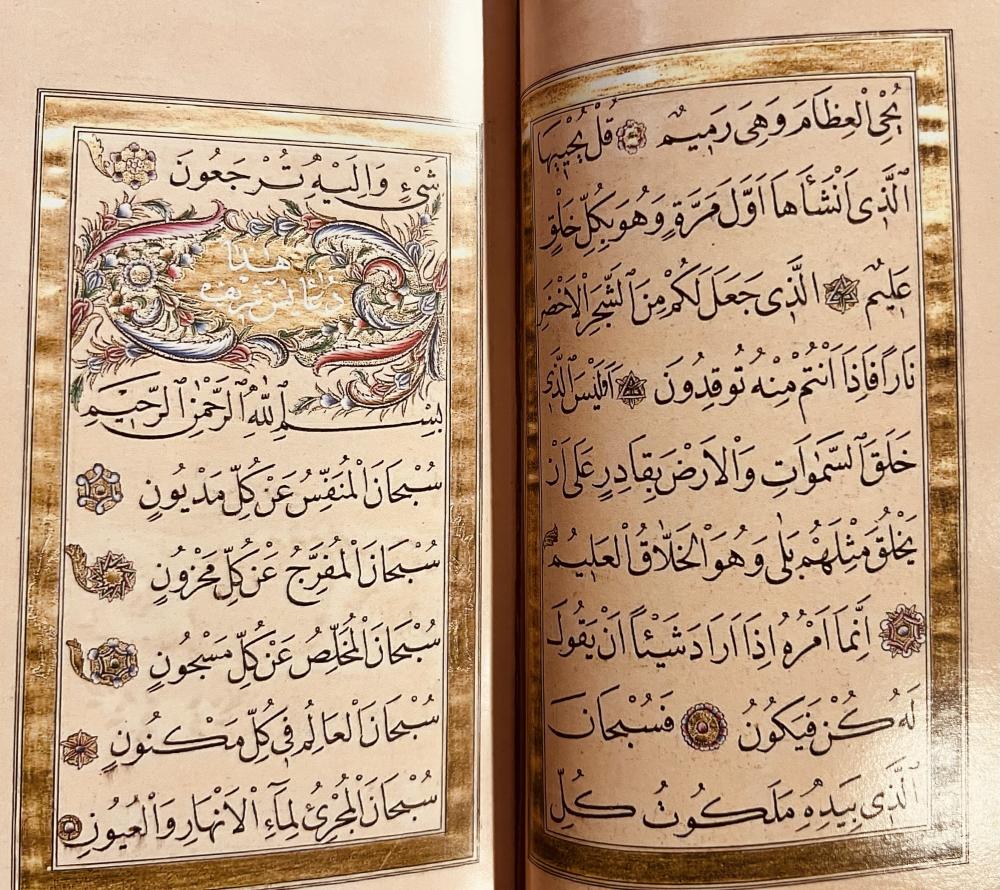 يُحْيِ الْعِظَامَ وَهِيَ رَمِيمٌ قُلْ يُحْيِيهَا
الَّذِى اَنْشَأَهَا اَوَّلَ مَرَّةٍ وَهُوَ بِكُلِّ خَلْقٍ
عَلِيمٌ الَّذِى جَعَلَ لَكُمْ مِنَ الشَّجَرِ الْاَخْضَرِ
نَارًا فَاِذَا اَنْتُمْ مِنْهُ تُوقِدُونَ اَوَلَيْسَ الَّذِى
خَلَقَ السَّمٰوَاتِ وَالْاَرْضَ بِقَادِرٍ عَلٰى اَنْ
يَخْلُقَ مِثْلَهُمْ بَلٰى وَهُوَ الْخَلَّاقُ الْعَلِيمُ
اِنَّمَا اَمْرُهُ اِذَا اَرَادَ شَيْئًا اَنْ يَقُولَ
لَهُ كُنْ فَيَكُونُ فَسُبْحَانَ
الَّذِى بِيَدِهِ مَلَكُوتُ كُلِّ
شَيْءٍ وَاِلَيْهِ تُرْجَعُونَ
هذا
دعاء يس شريف
بِسْمِ اللهِ الرَّحْمٰنِ الرَّحِيمِ
سُبْحَانَ الْمُنَفِّسِ عَنْ كُلِّ مَدْيُونٍ
سُبْحَانَ الْمُفَرِّجِ عَنْ كُلِّ مَحْزُونٍ
سُبْحَانَ الْمُخَلِّصِ عَنْ كُلِّ مَسْجُونٍ
سُبْحَانَ الْعَالِمِ فِى كُلِّ مَكْنُونٍ
سُبْحَانَ الْمُجْرِئِ لِمَاءِ الْاَنْهَارِ وَالْعُيُونِ